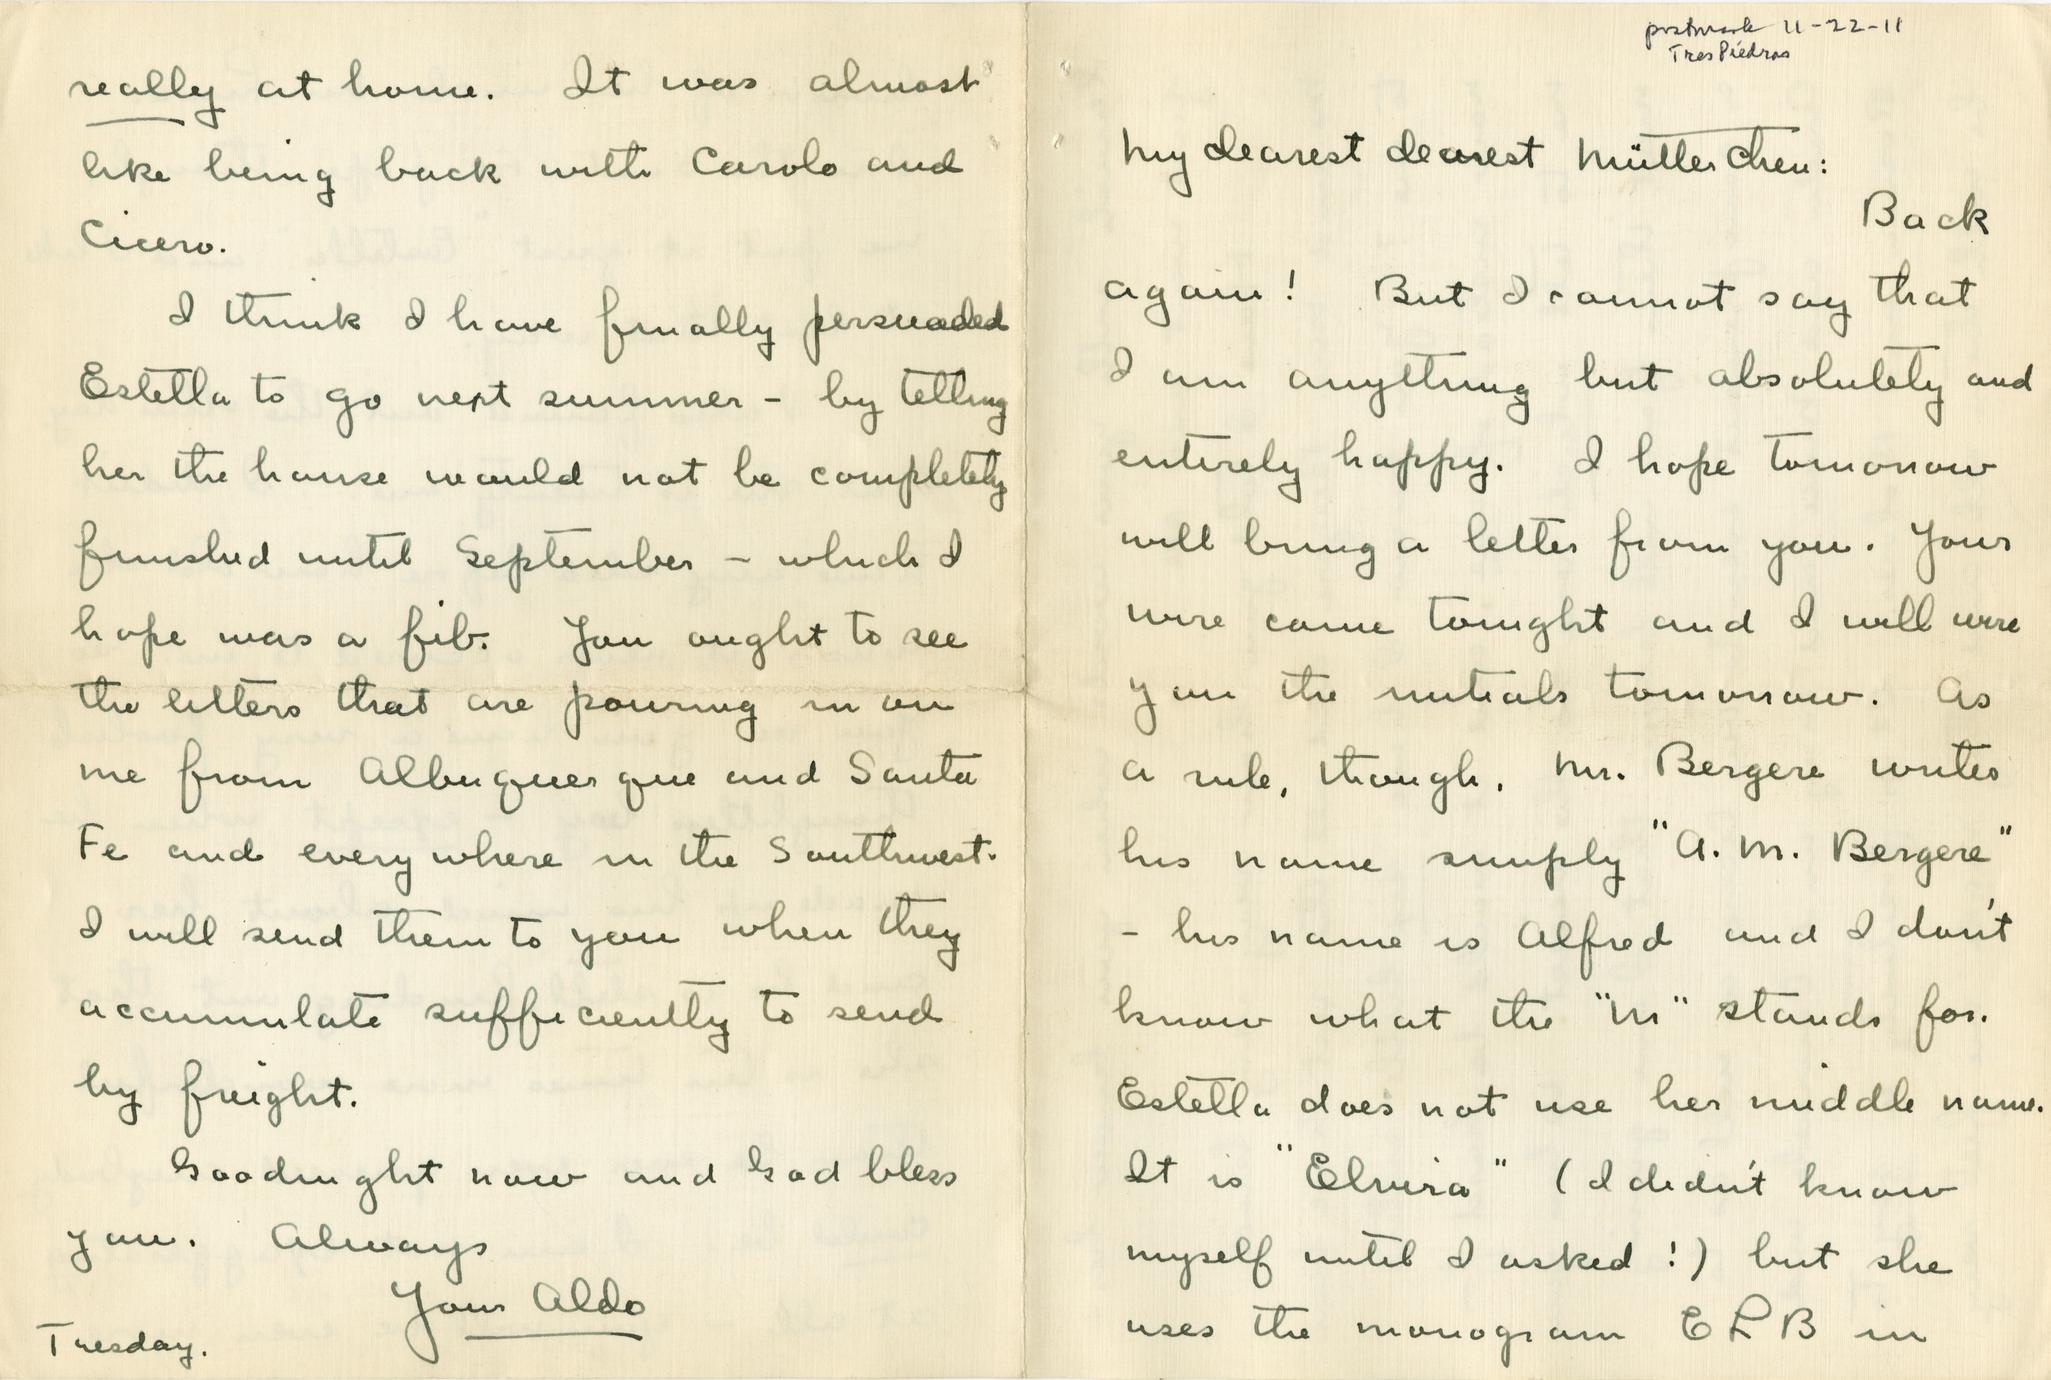 really at home. It was almost
like being back with Carolo and
Cicero.
I think I have finally persuaded
Estella to go next summer - by telling
her the house would not be completely
finished until September - which I
hope was a fib. You ought to see
the letters that are pouring in on
me from Albuquerque and Santa
Fe and everywhere in the Southwest.
I will send them to you when they
accumulate sufficiently to send
by freight.
Goodnight now and God bless
you. Always
Your Aldo
Tuesday.
postmark 11-22-11
Tres Piedras
My dearest dearest Mütterchen:
Back
again! But I cannot say that
I am anything but absolutely and
entirely happy. I hope tomorrow
will bring a letter from you. Your
wire came tonight and I will wire
you the initials tomorrow. As
a rule, though, Mr. Bergere writes
his name simply "A. M. Bergere"
- his name is Alfred and I don't
know what the "M" stands for.
Estella does not use her middle name.
It is "Elvira" (I didn't know
myself until I asked!) but she
uses the monogram ELB in